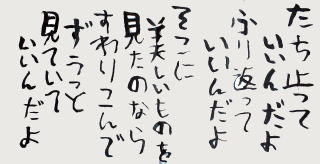 たち止って
いいんだよ
ふり返って
いいんだよ
そこに
美しいものを
見たのなら
すわりこんで
ずうっと
見ていて
いいんだよ